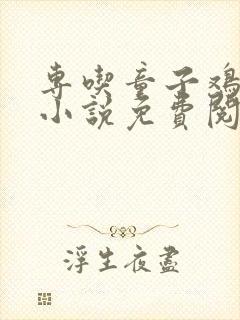 専喫童子鸡
小說免費閱
浮生夜盡